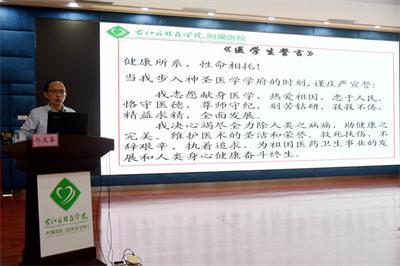 右江民族医学院 附属医院
《医学生誓言》
健康所系，性命相托！
当我步入神圣医学学府的时刻，谨庄严宣誓：
我志愿献身医学，热爱祖国，忠于人民，
恪守医德，尊师守纪，刻苦钻研，孜孜不倦，
精益求精，全面发展。
我决心竭尽全力除人类之病痛，助健康之
完美，维护医术的圣洁和荣誉，救死扶伤，不
辞艰辛，执着追求，为祖国医药卫生事业的发
展和人类身心健康奋斗终生。
右江民族医学院
附属医院